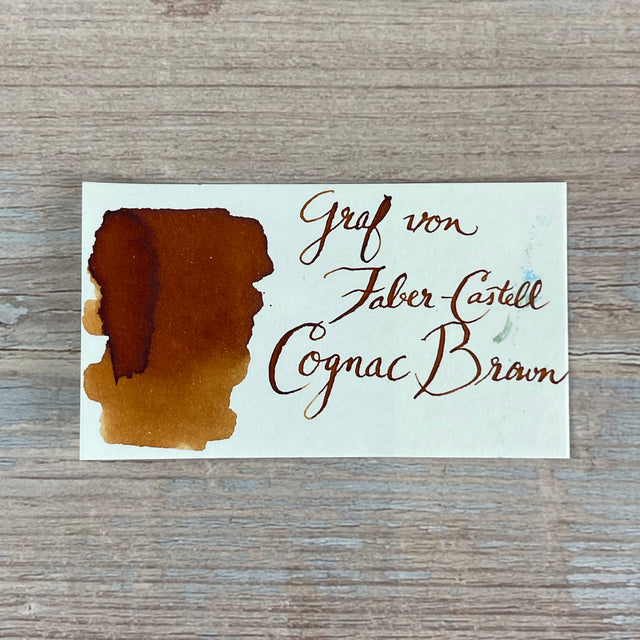 Graf von
Faber-Castell
Cognac Brown